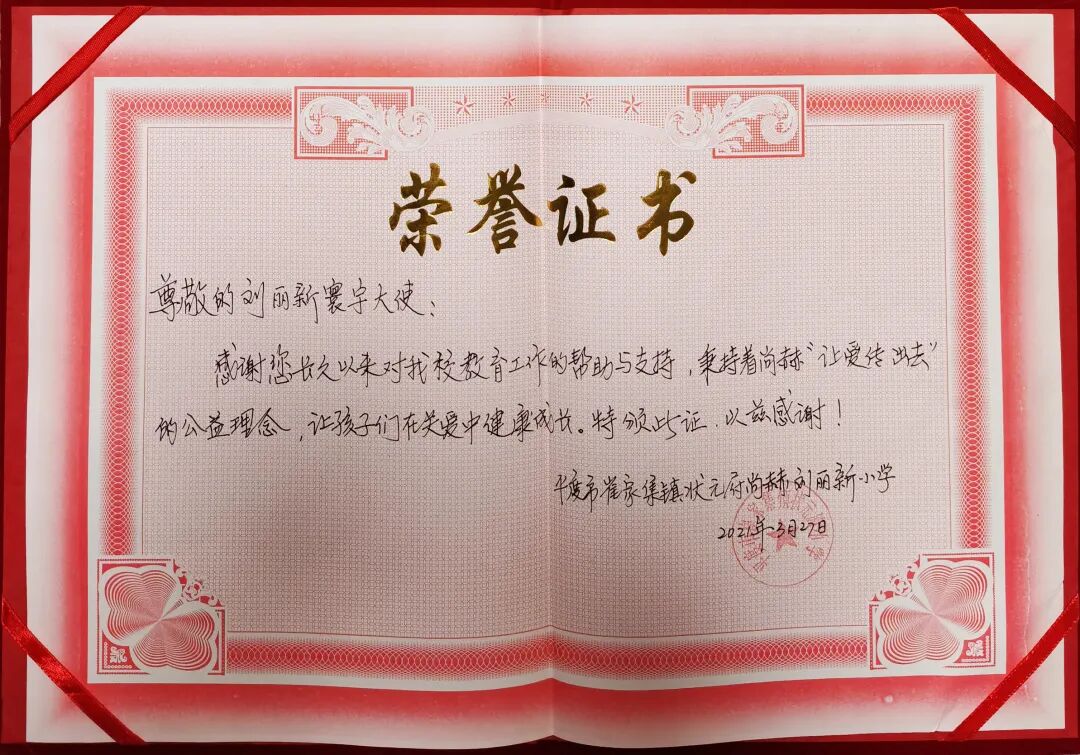 荣誉证书
尊敬的刘丽新寰宇大使：
感谢您长久以来对我校教育工作的帮助与支持，秉持着尚赫“让爱传出去”
的公益理念，让孩子们在关爱中健康成长。特颁此证，以兹感谢！
平度市崔家集镇状元府尚赫刘丽新小学
2021年3月27日